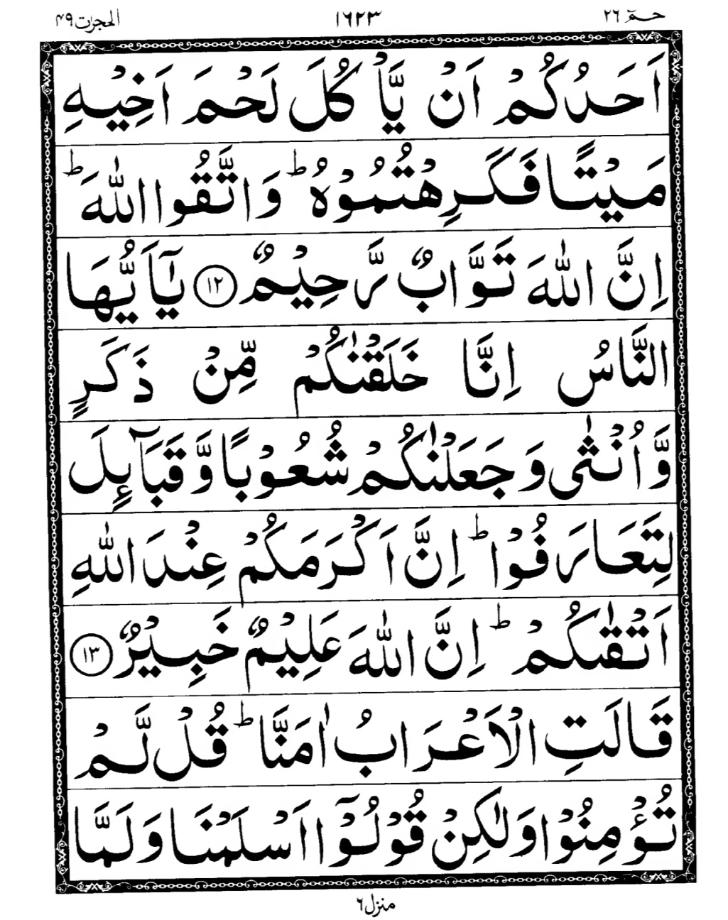 الحجرٰت ٤٩ ١٦٢٣ حٰمٓ ٢٦
اَحَدُكُمْ اَنْ يَّاْكُلَ لَحْمَ اَخِيْهِ
مَيْتًا فَكَرِهْتُمُوْهُ ؕ وَاتَّقُوا اللّٰهَ ؕ
اِنَّ اللّٰهَ تَوَّابٌ رَّحِيْمٌ ﴿١٢﴾ يٰۤاَيُّهَا
النَّاسُ اِنَّا خَلَقْنٰكُمْ مِّنْ ذَكَرٍ
وَّاُنْثٰى وَجَعَلْنٰكُمْ شُعُوْبًا وَّقَبَآئِلَ
لِتَعَارَفُوْا ؕ اِنَّ اَكْرَمَكُمْ عِنْدَ اللّٰهِ
اَتْقٰىكُمْ ؕ اِنَّ اللّٰهَ عَلِيْمٌ خَبِيْرٌ ﴿١٣﴾
قَالَتِ الْاَعْرَابُ اٰمَنَّا ؕ قُلْ لَّمْ
تُؤْمِنُوْا وَلٰكِنْ قُوْلُوْۤا اَسْلَمْنَا وَلَمَّا
منزل ٦